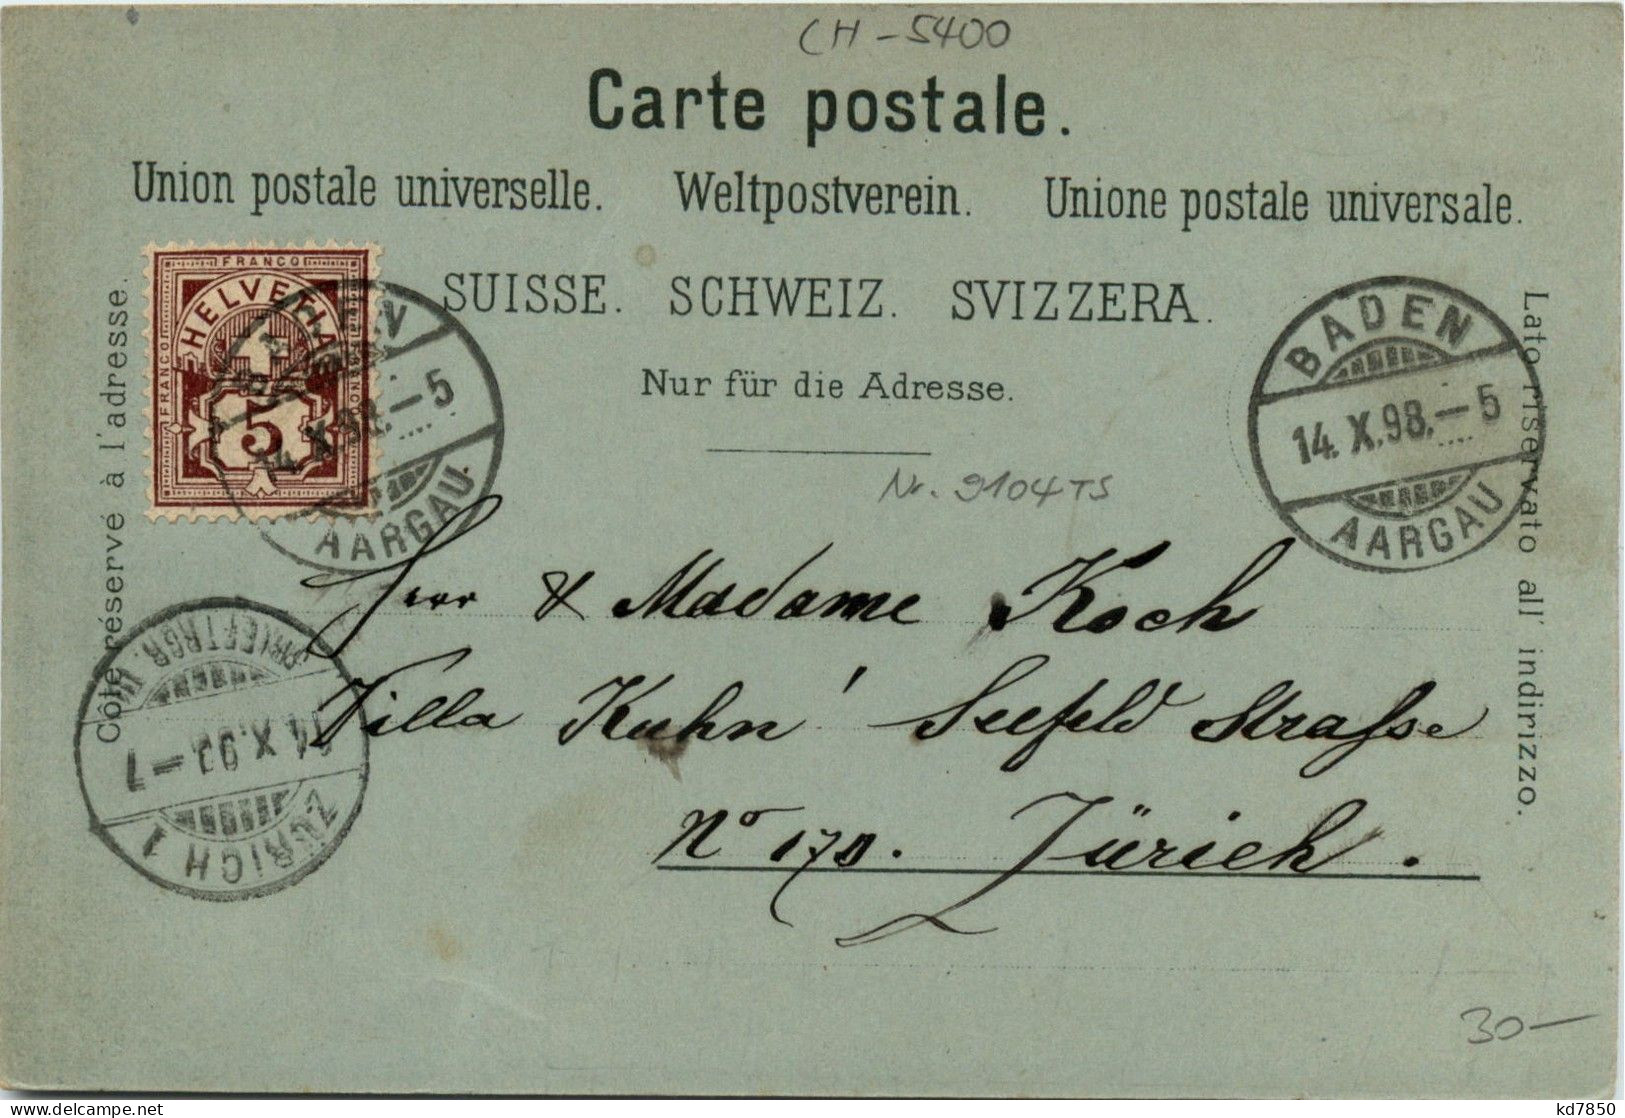 CH-5400
Carte postale.
Union postale universelle. Weltpostverein. Unione postale universale.
SUISSE. SCHWEIZ. SVIZZERA.
Nur für die Adresse.
Côté réservé à l'adresse.
Lato riservato all' indirizzo.
FRANCO
FRANCO
HELVETIA
5
14. X. 98. – 5
AARGAU.
BADEN
14. X. 98. – 5
AARGAU
Nr. 9104 TS
Herr & Madame Koch
Villa Kuhn Seefeld Strasse
No 170. Zürich.
BRIEFTRGR.
14. X. 98 – 7
ZÜRICH 1
30–
delcampe.net
kd7850